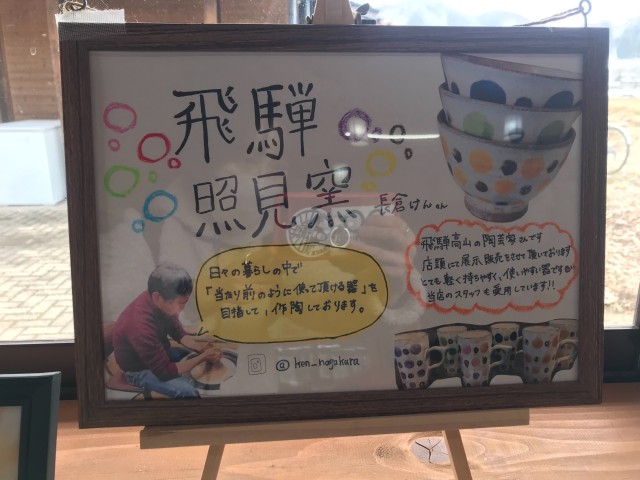 飛騨
照見窯
長倉けんさん
日々の暮らしの中で
「当たり前のように使って頂ける器」を
目指して、作陶しております。
@ken_nagakura
飛騨高山の陶芸家さんです
店頭にて展示販売もさせて頂いております
とても軽く持ちやすく、使いやすい器ですよ
当店のスタッフも愛用しています!!